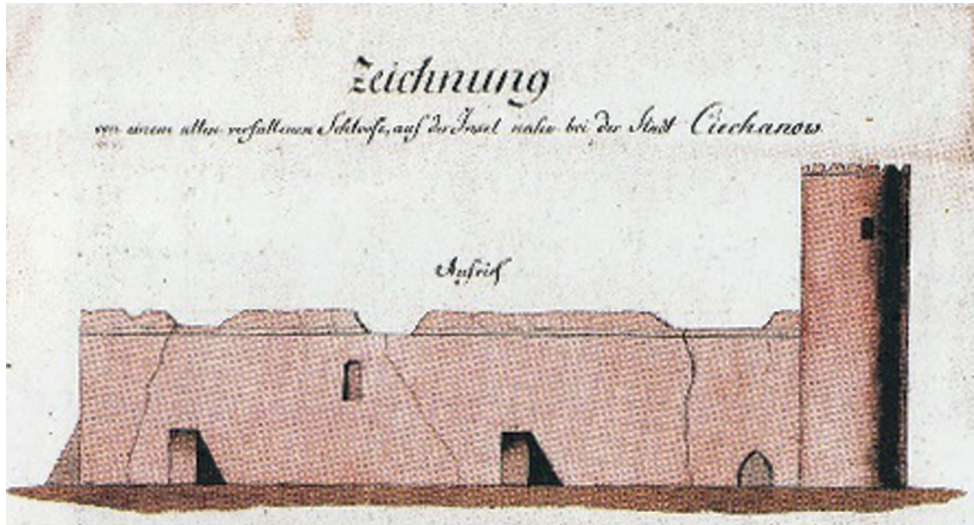 Zeichnung
von einem alten verfallenen Schlosse, auf der Insel nahe bei der Stadt Ciechanow
Aufriß